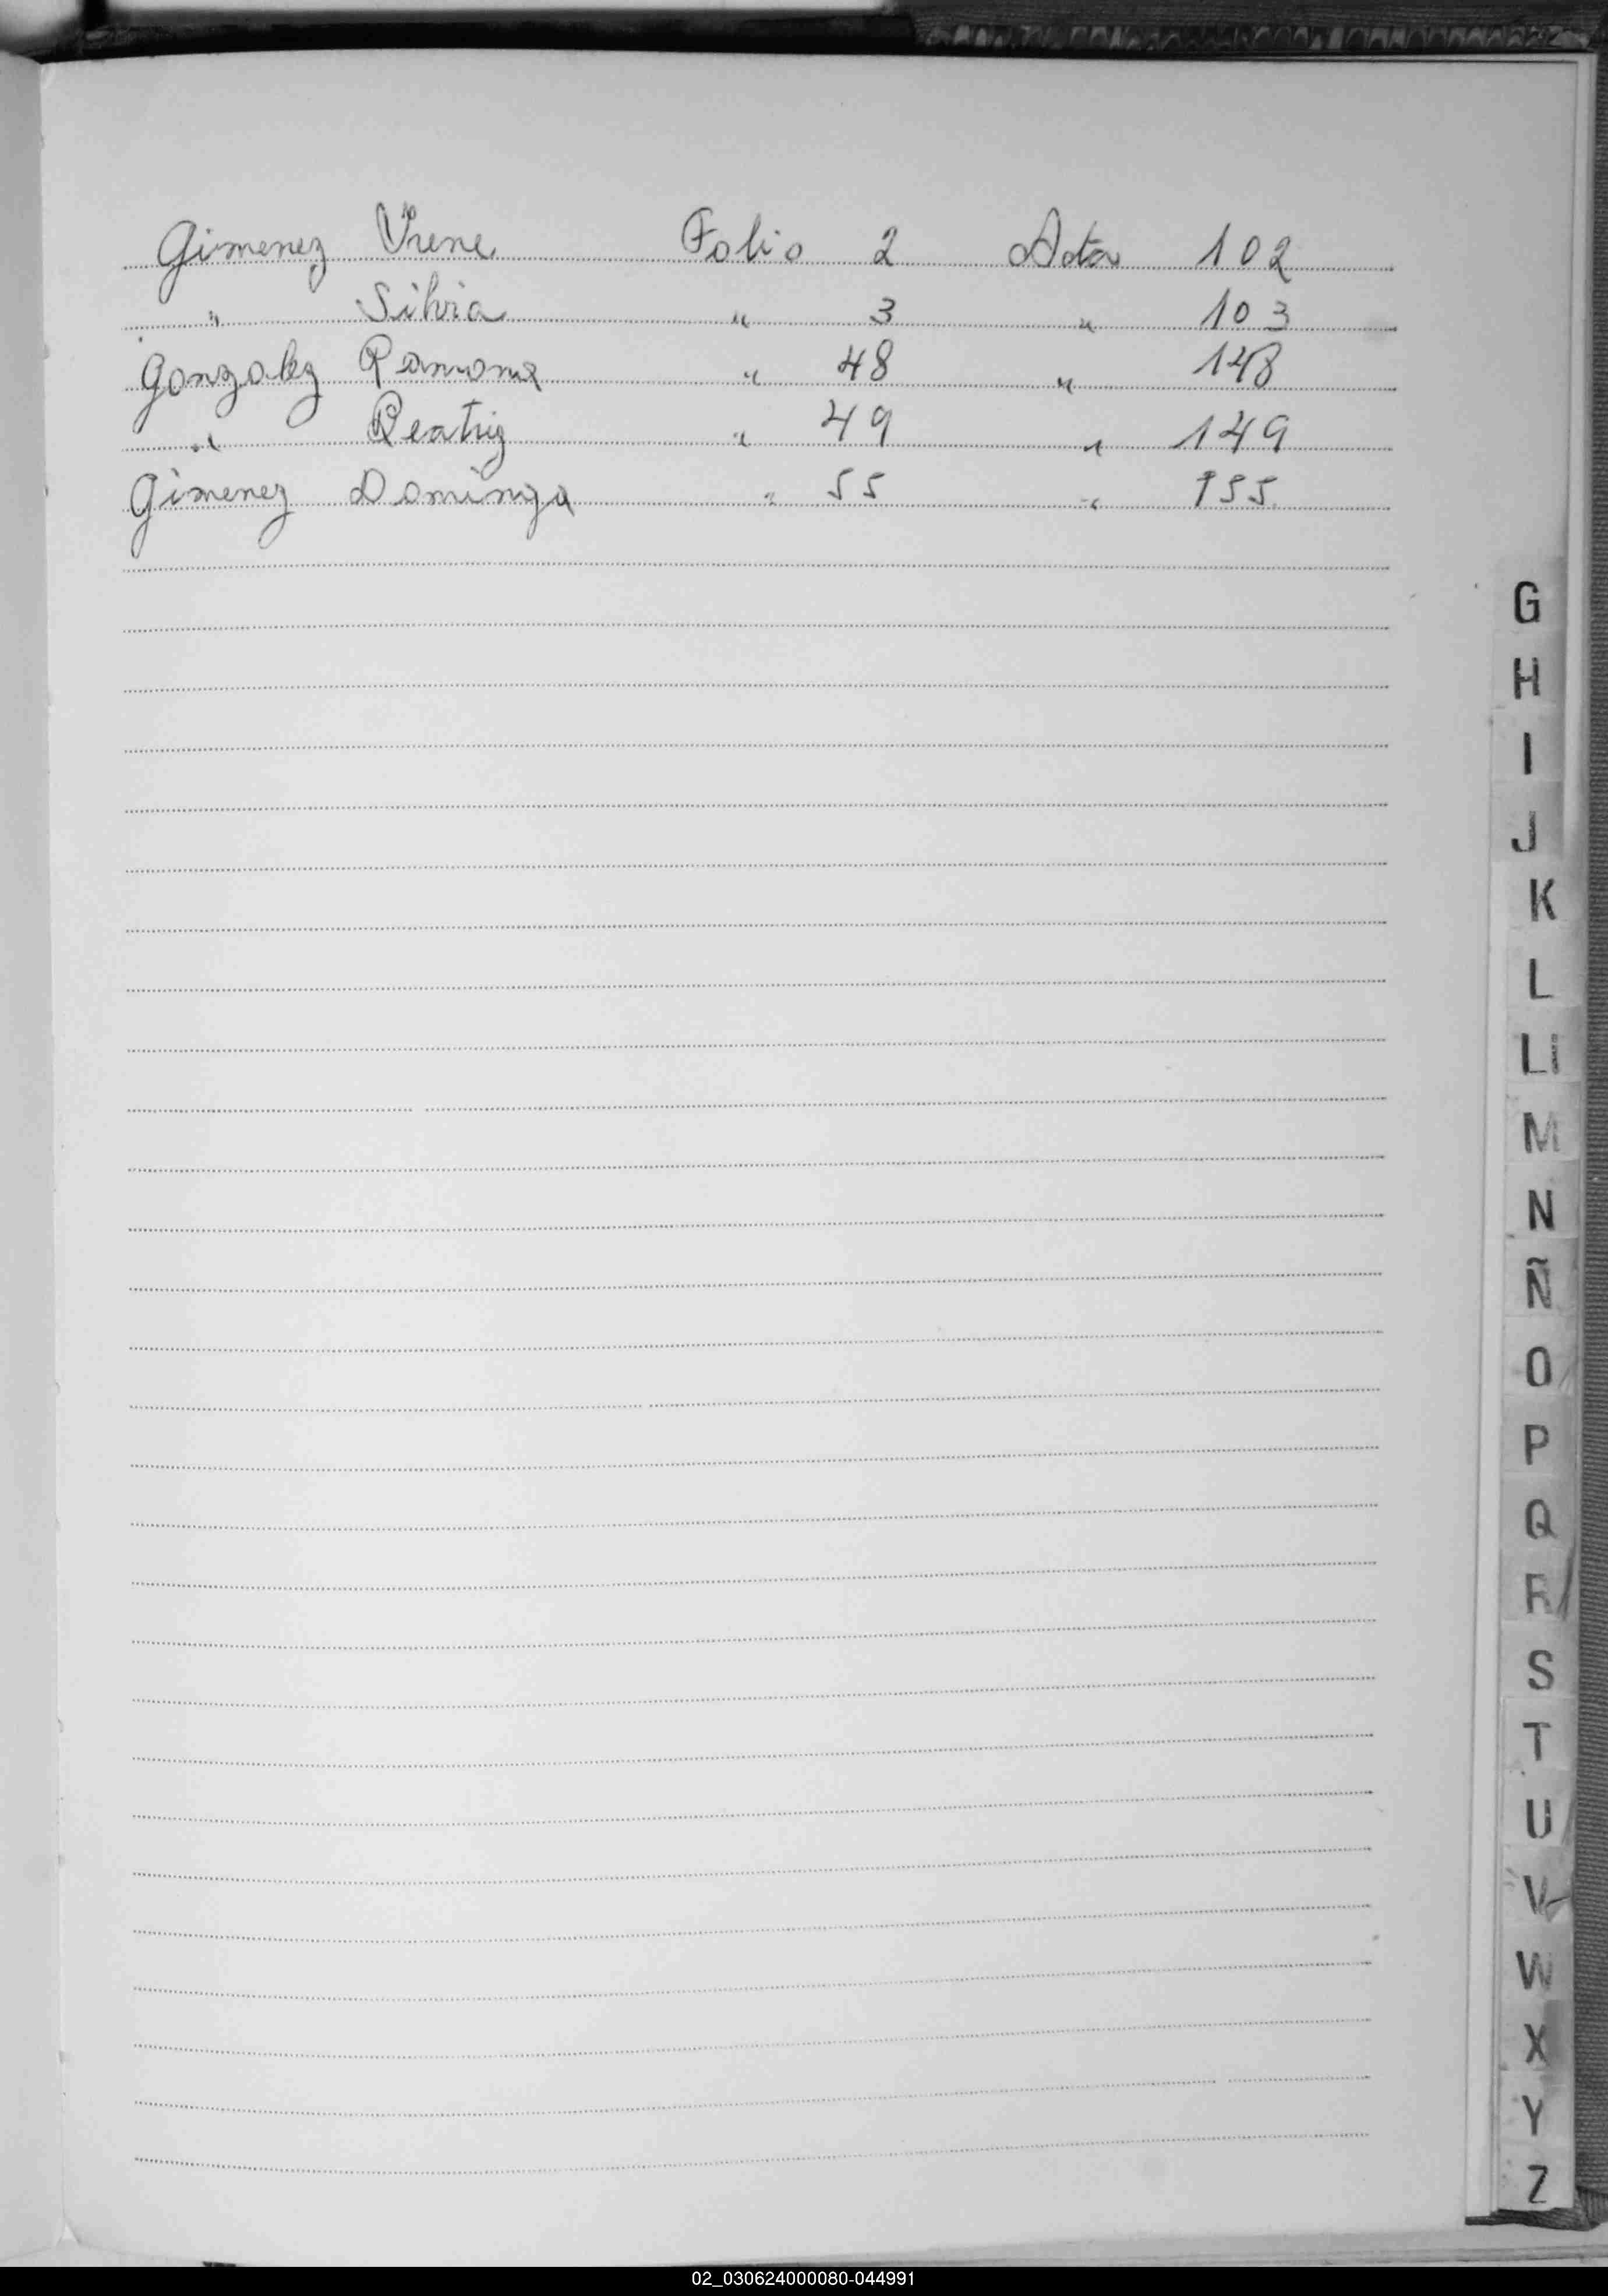 Gimenez Irene Folio 2 Acta 102
" Silvia " 3 " 103
Gonzalez Ramona " 48 " 148
" Beatriz " 49 " 149
Gimenez Dominga " 55 " 155
G
H
I
J
K
L
Ll
M
N
Ñ
O
P
Q
R
S
T
U
V
W
X
Y
Z
02_030624000080-044991